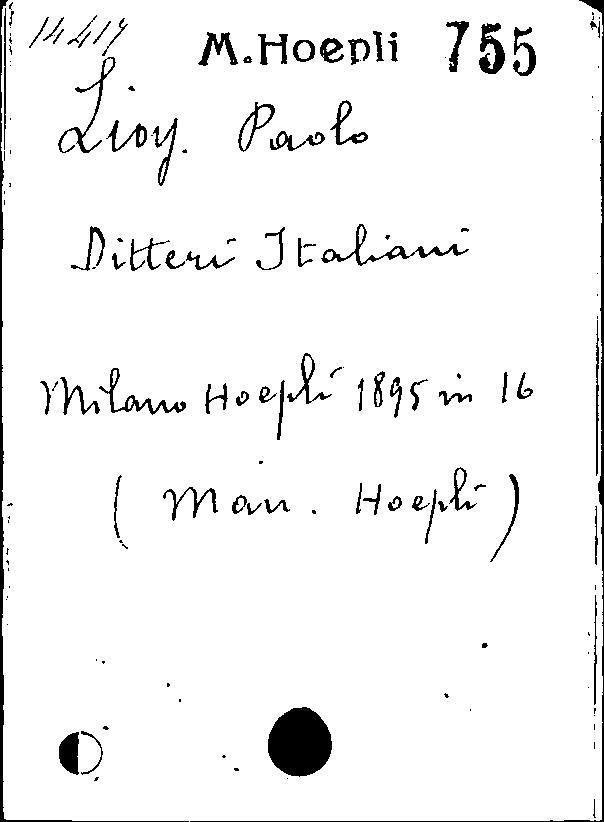 14414 M. Hoepli 755
Lioy. Paolo
Ditteri Italiani
Milano Hoepli 1895 in 16
(Man. Hoepli)